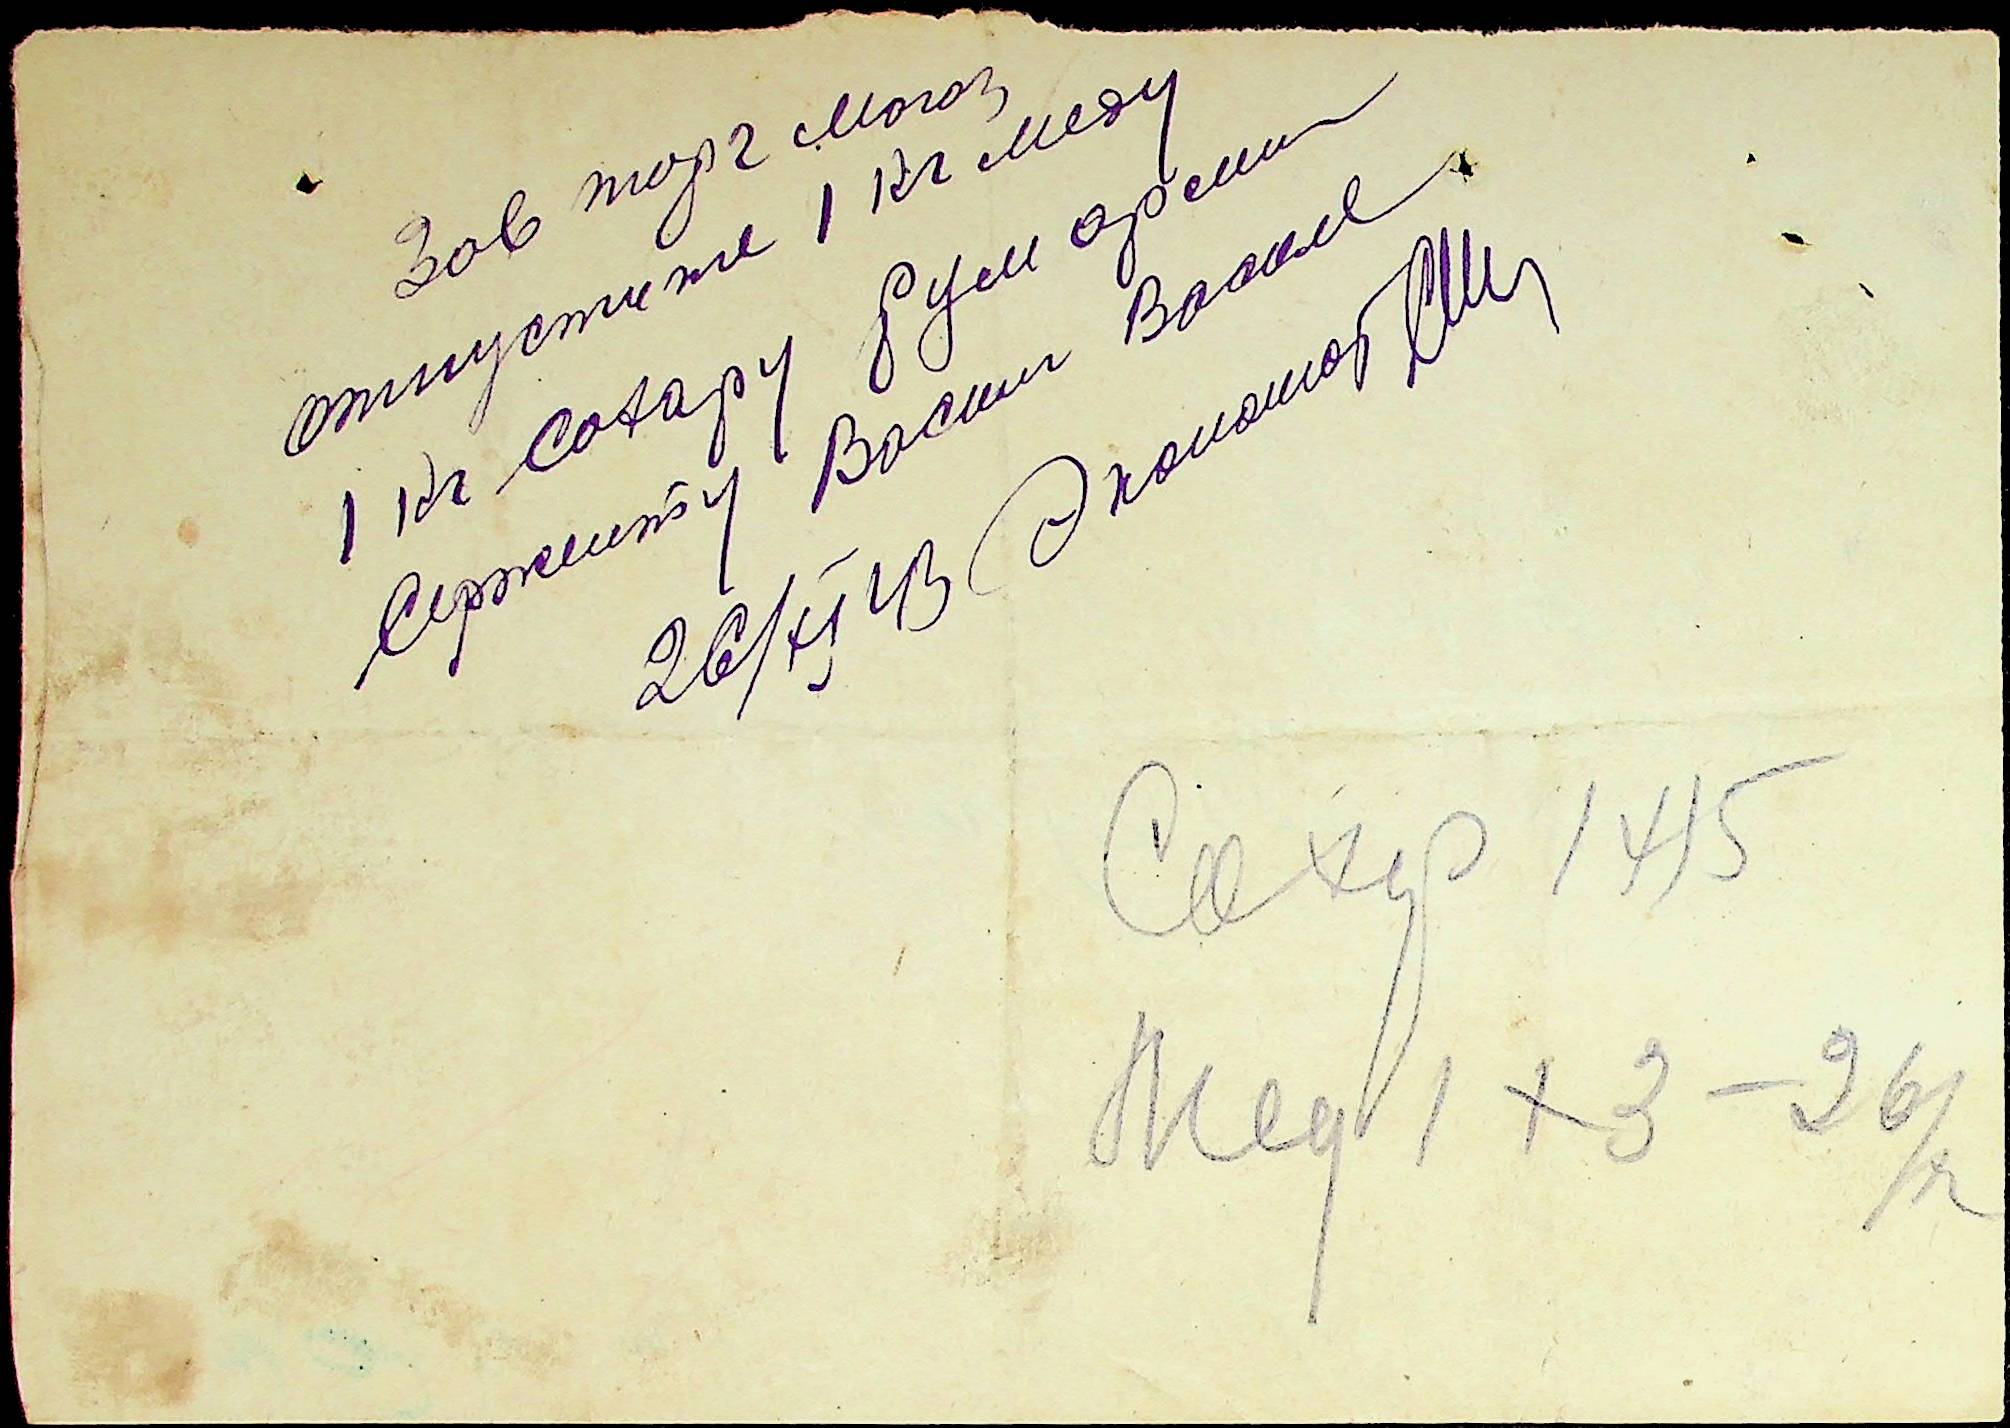 Зав торг магаз
отпустите 1 кг меду
1 кг сахару рум армии
Сержинту Васили Василе
26/XI 43 Экономат
Сахар 1 415
Мед 1 х 3 - 26/